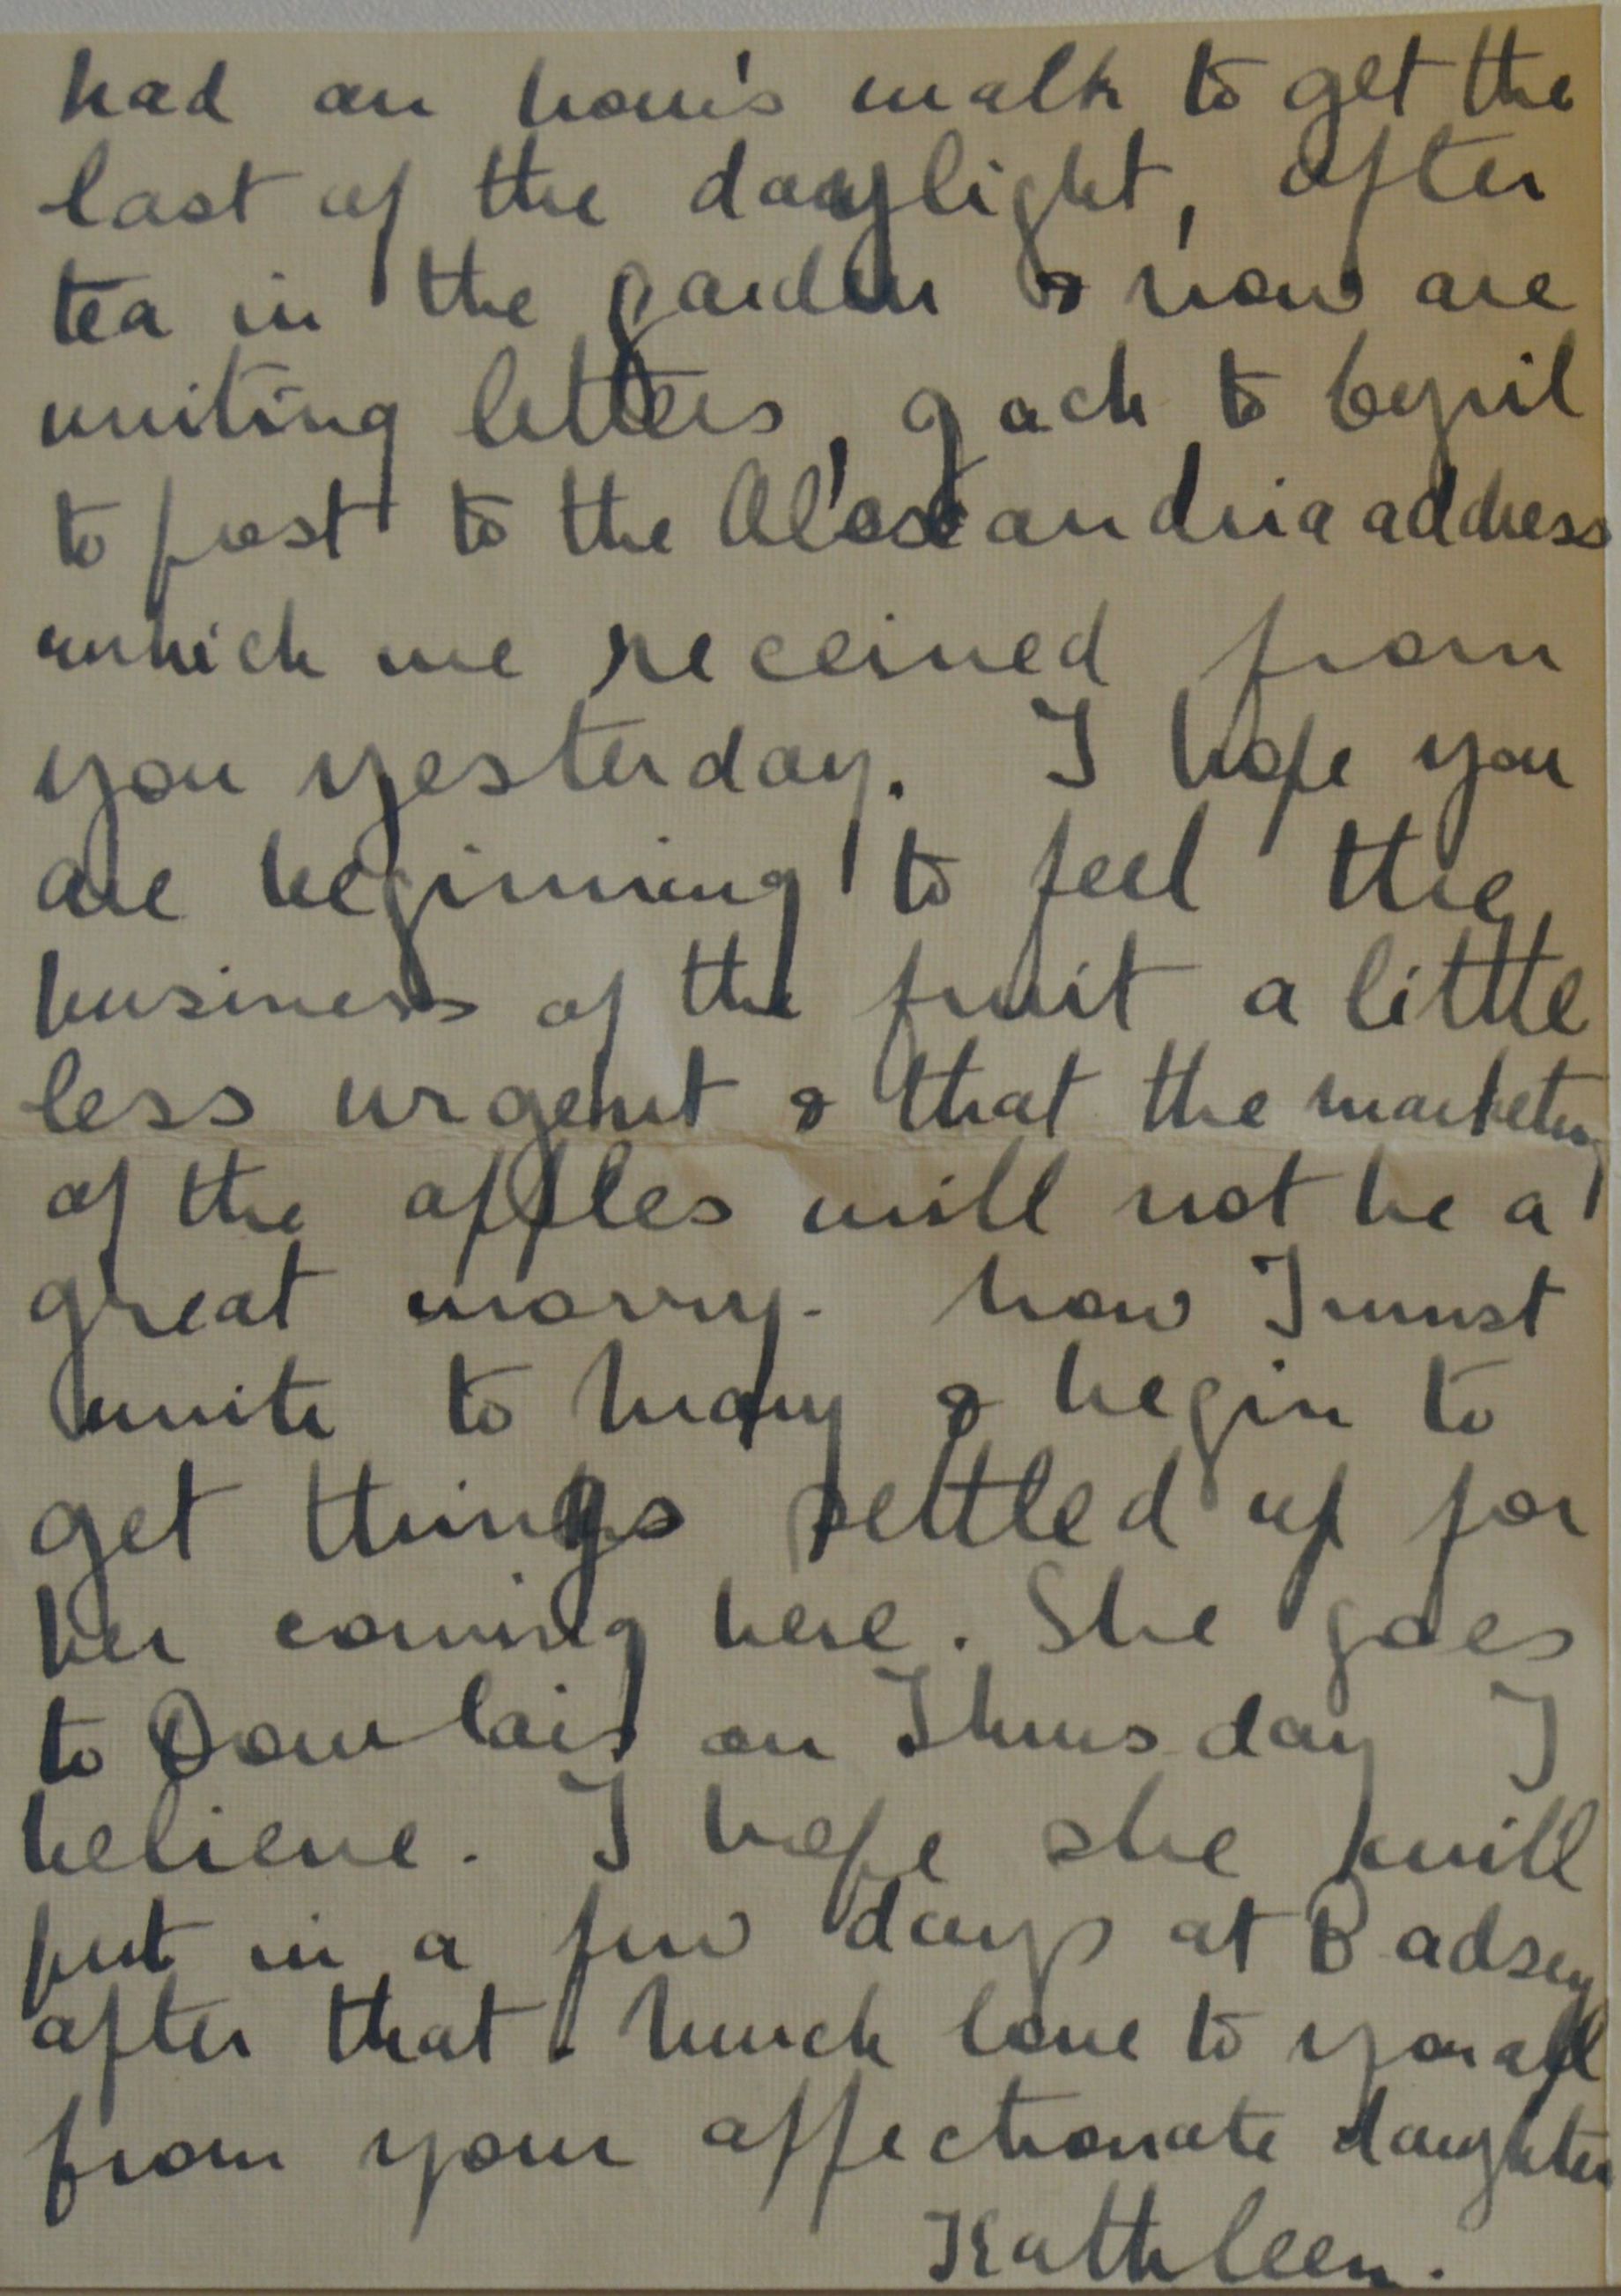 had an hour's walk to get the
last of the daylight, after
tea in the garden & now are
writing letters, Jack to Cyril
to post to the Alexandria address
which we received from
you yesterday. I hope you
are beginning to feel the
business of the fruit a little
less urgent & that the marketing
of the apples will not be a
great worry. Now I must
write to Mary & begin to
get things settled up for
her coming here. She goes
to Dowlais on Thursday I
believe. I hope she will
put in a few days at Badsey
after that. Much love to you all
from your affectionate daughter
Kathleen.